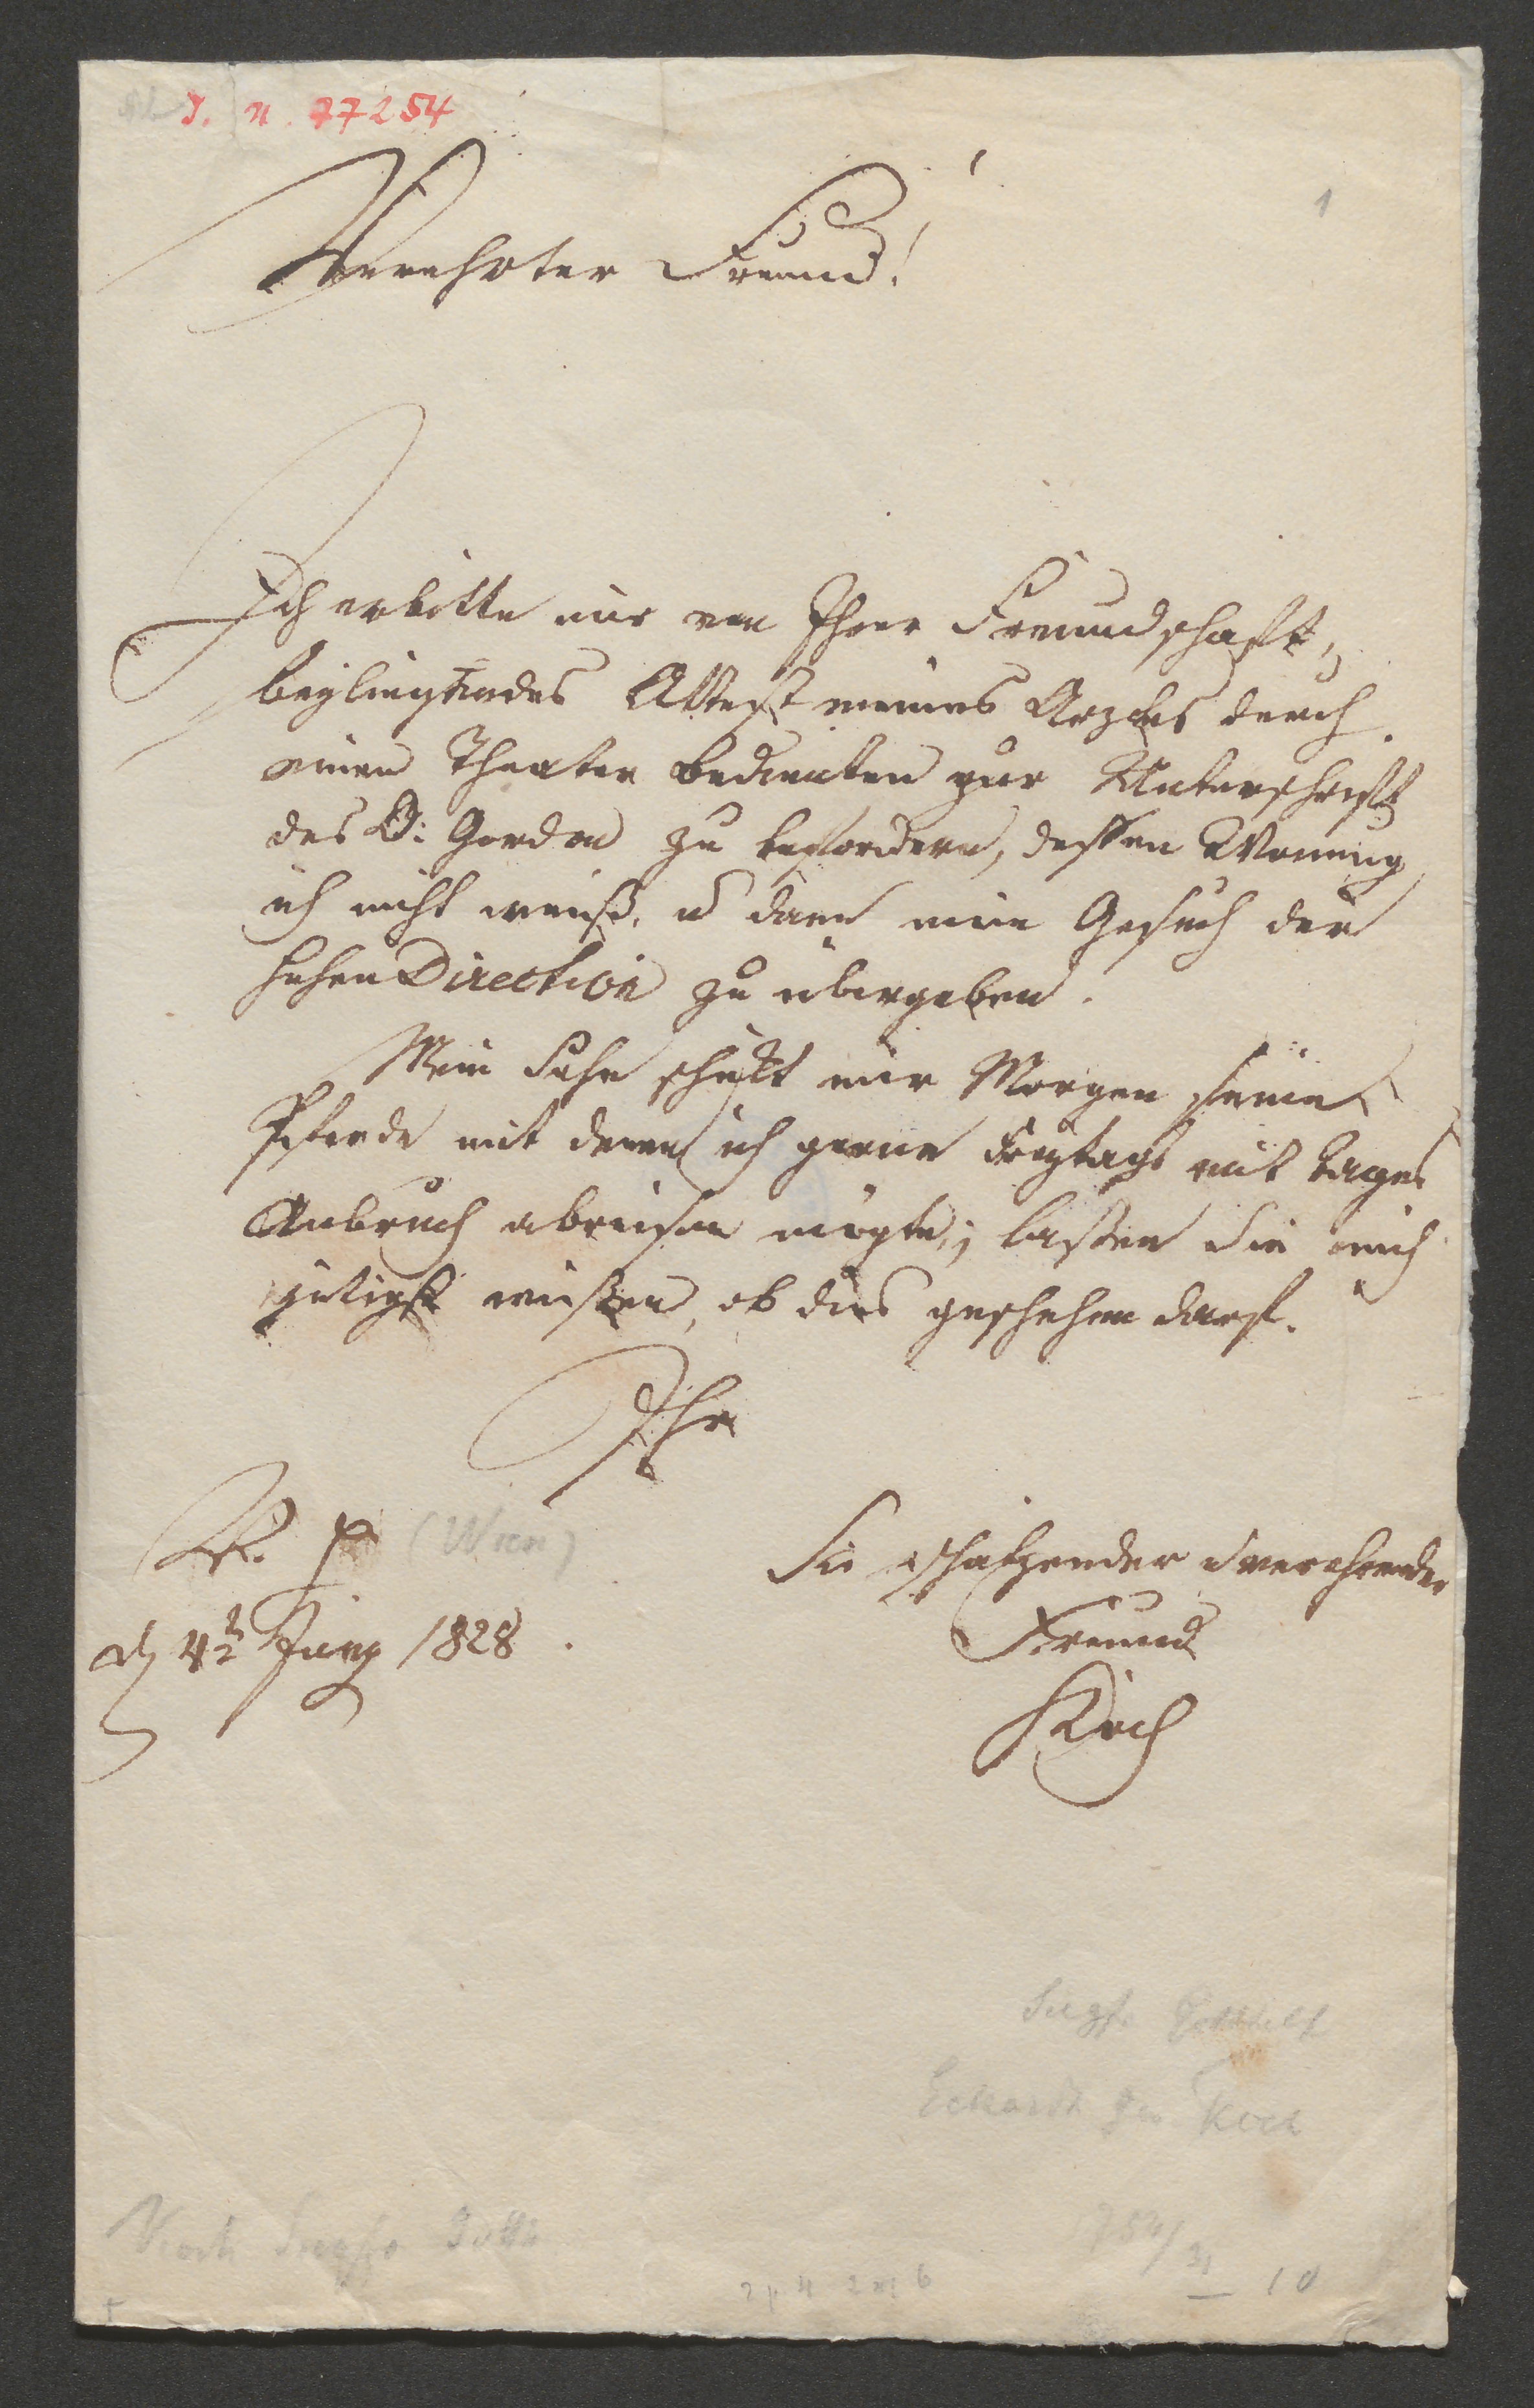 J. N. 77254
1
Verehrter Freund!
Ich erbitte mir von Ihrer Freundschaft,
beyliegendes Attest meines Arztes durch
einen Theater bedienten zur Unterschrift
des D: Gordon zu befordern, dessen Wonung
ich nicht weiß, u dann mein Gesuch der
hohen Direction zu übergeben.
Mein Sohn schikt mir Morgen seine
Pferde mit denen ich gerne Freytags mit tages
Anbruch abreisen mögte; lassen Sie mich
gütigst wissen, ob dies geschehen darf.
Ihr
(Wien)
Sie schatzender u verehrender
Freund
d 4t Juny 1828.
Koch
Siegfr. Gotthelf
Eckardt gen Koch
Koch Siegfr. Gotth